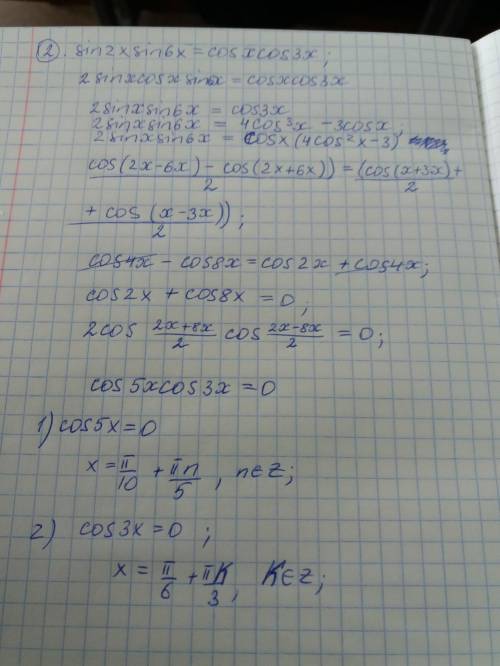 2). sin2x sin6x = cosx cos3x;
2 sinx cosx sin6x = cosx cos3x
2 sinx sin6x = cos3x
2 sinx sin6x = 4cos³x - 3cosx,
2 sinx sin6x = cosx (4cos²x - 3)
(cos(2x-6x) - cos(2x+6x))/2 = (cos(x+3x) +
+ cos(x-3x))/2;
cos4x - cos8x = cos2x + cos4x;
cos2x + cos8x = 0;
2cos (2x+8x)/2 cos (2x-8x)/2 = 0;
cos5x cos3x = 0
1) cos5x = 0
x = π/10 + πn/5, n∈Z;
2) cos3x = 0;
x = π/6 + πK/3, K∈Z;